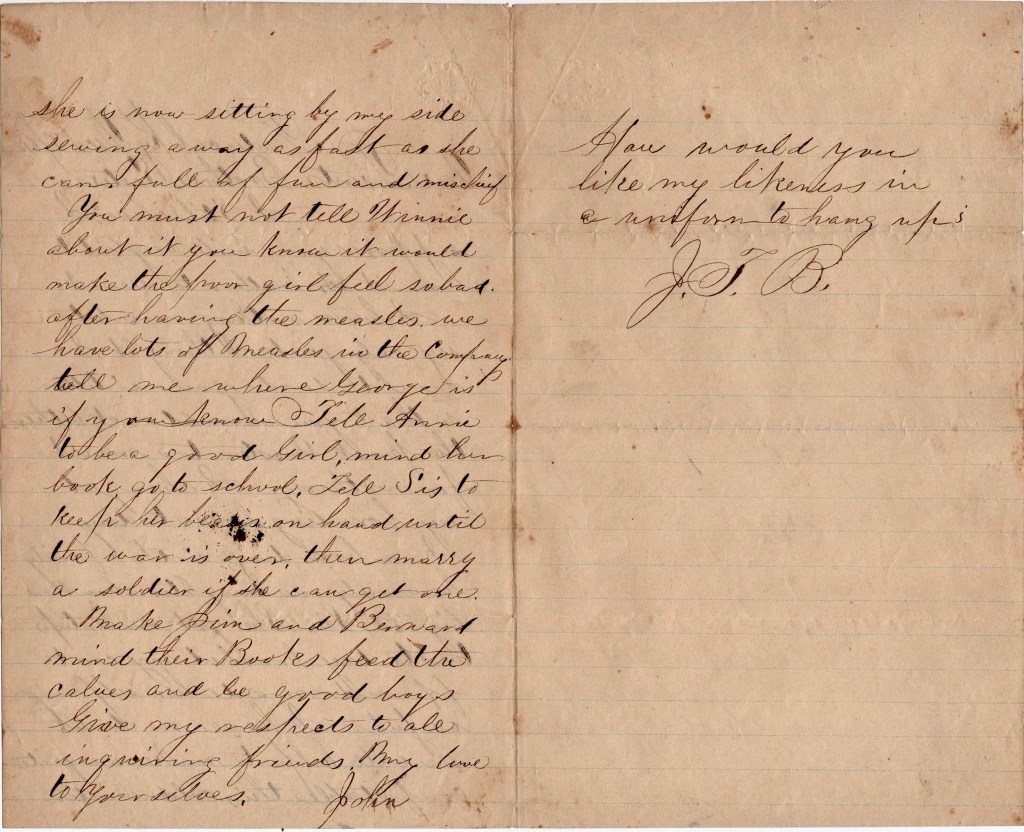 she is now sitting by my side
sewing away as fast as she
can. full of fun and mischief
You must not tell Winnie
about it you know it would
make the poor girl feel so bad.
after having the measles. we
have lots of Measles in the Company.
tell me where George is
if you know Tell Annie
to be a good Girl, mind her
book, go to school. Tell Sis to
keep her beaus on hand until
the war is over, then marry
a soldier if she can get one.
Make Jim and Bernard
mind their Books feed the
calves and be good boys
Give my respects to all
inquiring friends. My love
to yourselves. John
How would you
like my likeness in
a uniform to hang up
J. T. B.